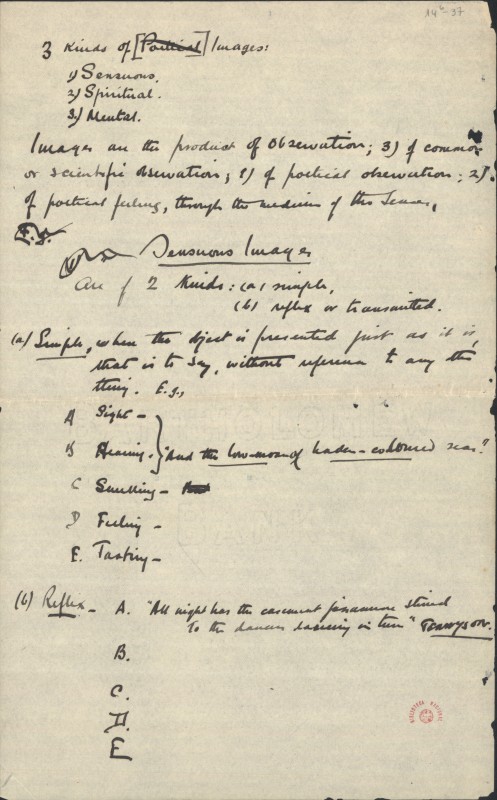 14⁶-37
3 Kinds of [Poetical] Images:
1) Sensuous.
2) Spiritual.
3) Mental.
Images are the product of observation; 3) of common
or scientific observation; 1) of poetical observation; 2)
of poetical feeling, through the medium of the senses.
Sensuous Images
are of 2 Kinds: (a) simple,
(b) reflex or transmitted.
(a) Simple, when the object is presented just as it is,
that is to say, without reference to any other
thing. E.g.,
A Sight -
B Hearing. "And the low-moan of leaden-coloured seas."
C Smelling -
D Feeling -
E. Tasting -
(b) Reflex - A. "All night has the casement jessamine stirred
To the dancers dancing in tune" Tennyson.
B.
C.
D.
E